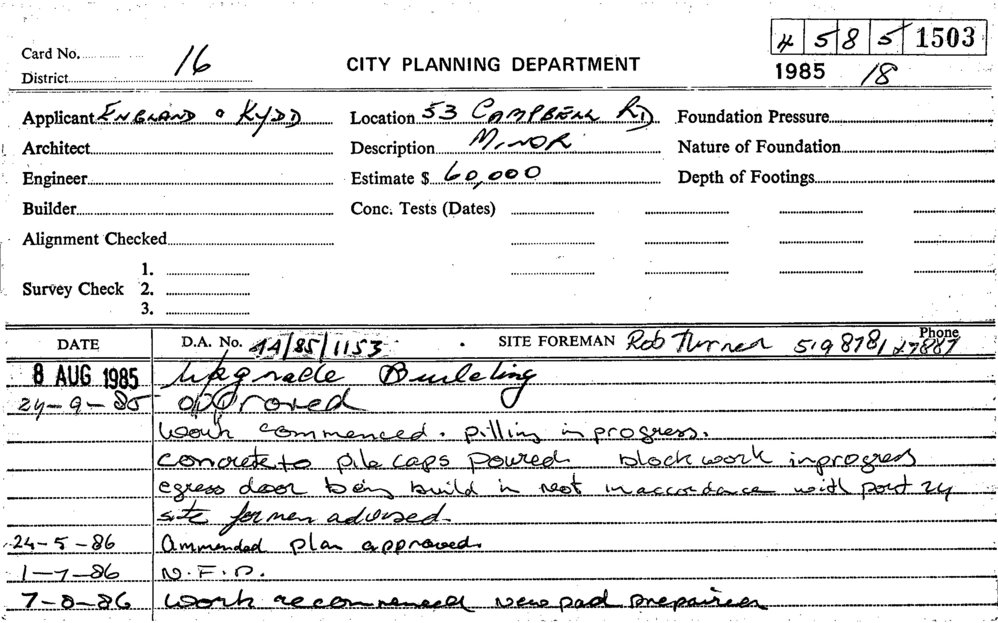 4 5 8 5 1503
Card No. 16
District
CITY PLANNING DEPARTMENT
1985 /8
Applicant ENGLAND & KYDD Location 53 CAMPBELL RD Foundation Pressure
Architect Description MINOR Nature of Foundation
Engineer Estimate $ 60,000 Depth of Footings
Builder Conc. Tests (Dates)
Alignment Checked
1.
Survey Check 2.
3.
DATE D.A. No. 44/85/1153 SITE FOREMAN Rob Turner Phone 5198781 x7887
8 AUG 1985 Upgrade Building
24-9-85 approved
work commenced. pilling in progress.
concrete to pile caps poured block work in progress
egress door being build in not in accordance with part 24
site formen advised.
24-5-86 Ammended plan approved.
1-7-86 N.F.P.
7-8-86 work recommenced new pad